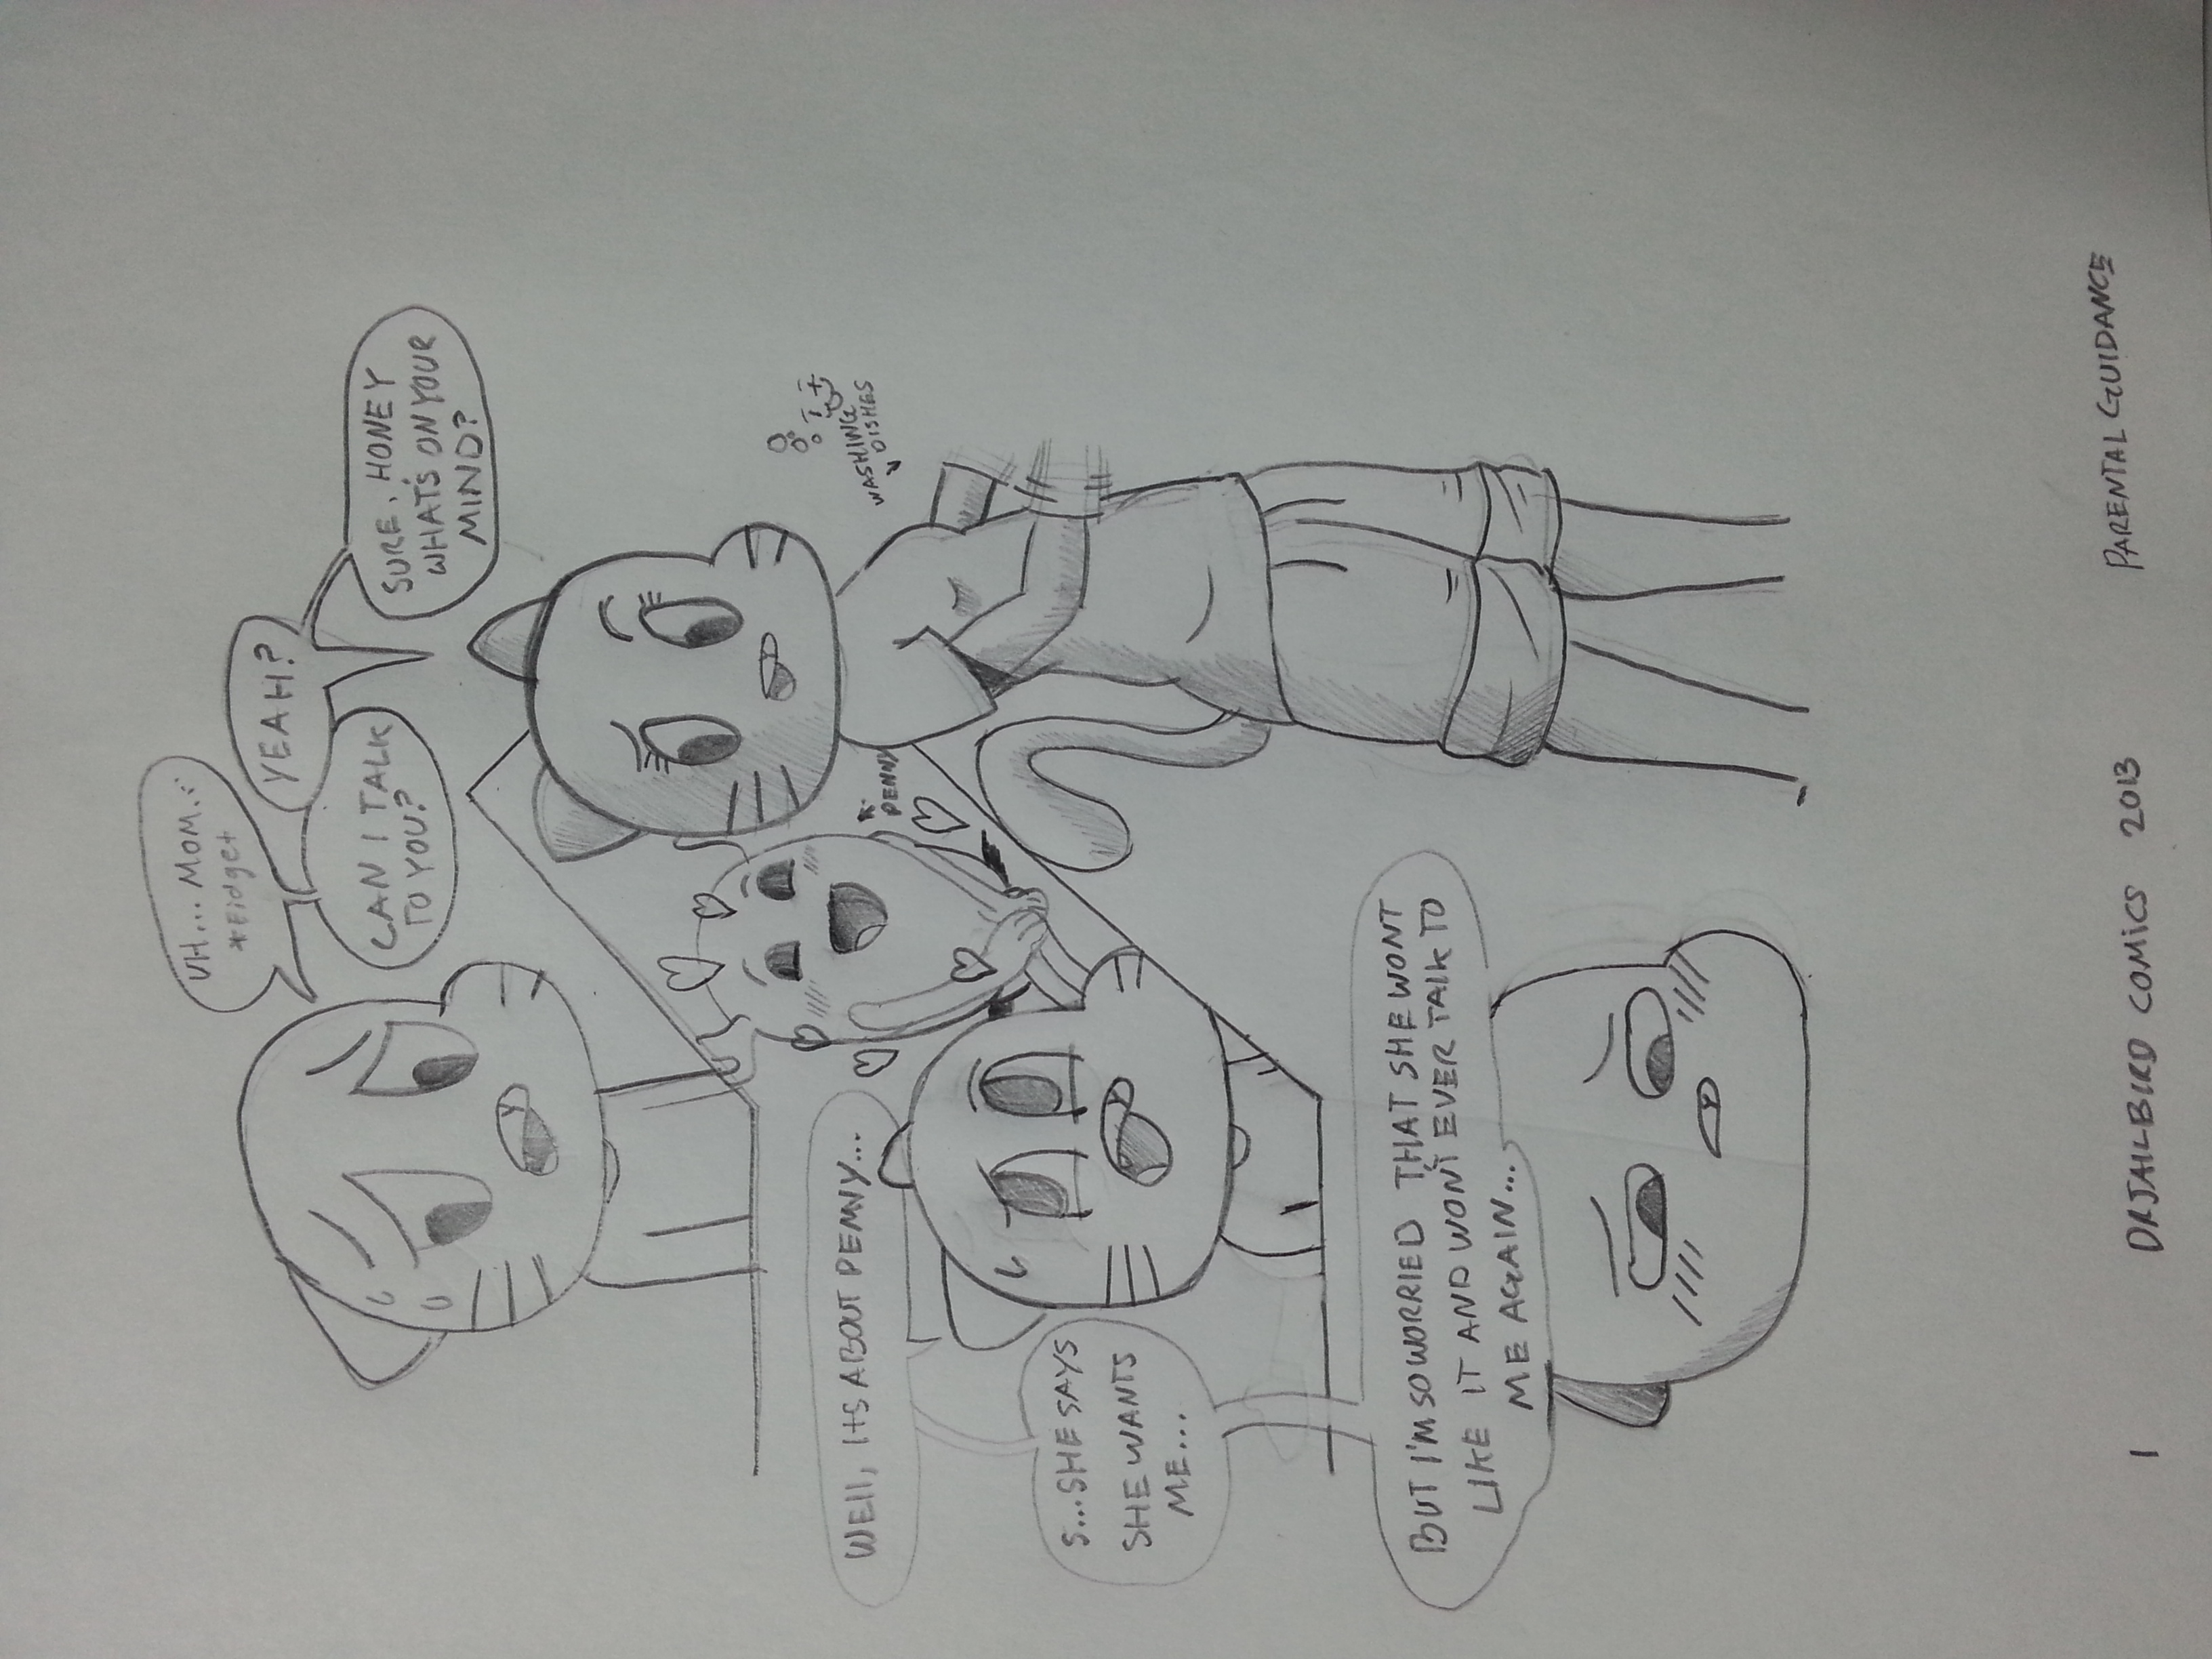 UH... MOM...
*Fidget
YEAH?
CAN I TALK
TO YOU?
SURE, HONEY
WHAT'S ON YOUR
MIND?
WASHING
DISHES
WELL, ITS ABOUT PENNY...
PENNY
S...SHE SAYS
SHE WANTS
ME...
BUT I'M SO WORRIED THAT SHE WONT
LIKE IT AND WON'T EVER TALK TO
ME AGAIN...
1 DRJAILBIRD COMICS 2013 PARENTAL GUIDANCE